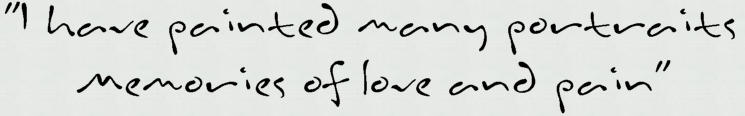 "I have painted many portraits
memories of love and pain"